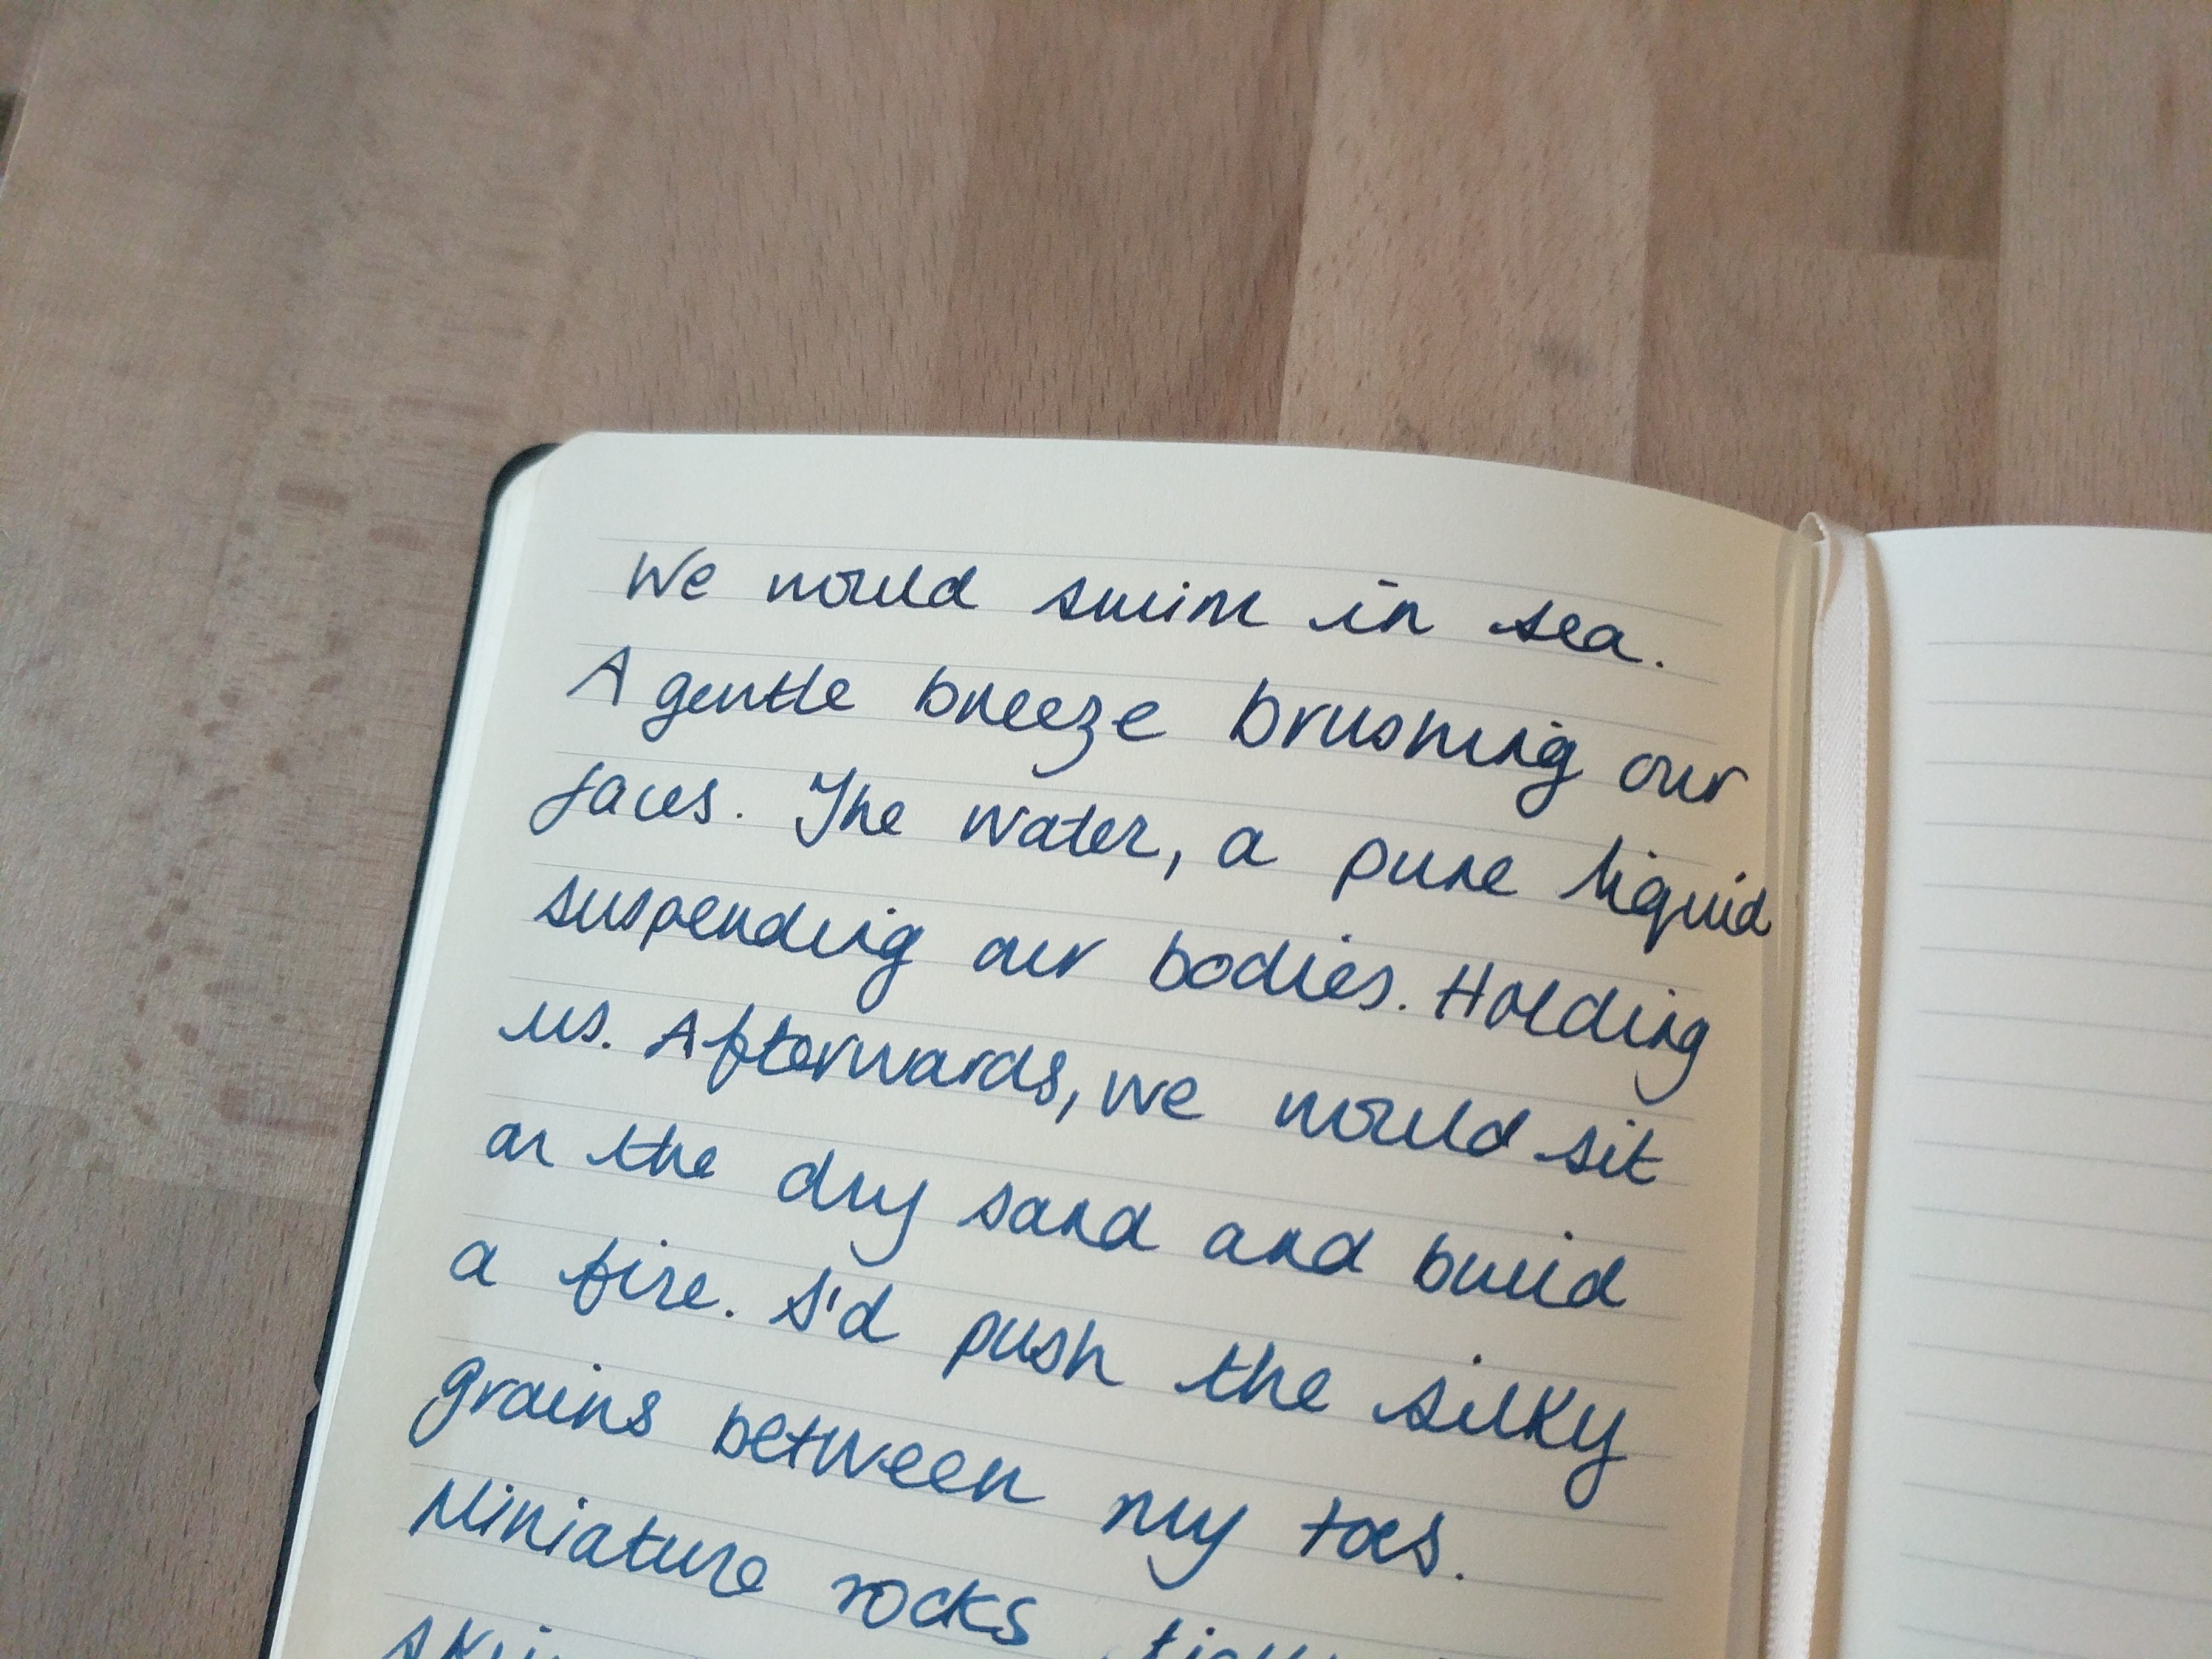 We would swim in sea.
A gentle breeze brushing our
faces. The water, a pure liquid
suspending our bodies. Holding
us. Afterwards, we would sit
on the dry sand and build
a fire. I'd push the silky
grains between my toes.
Miniature rocks